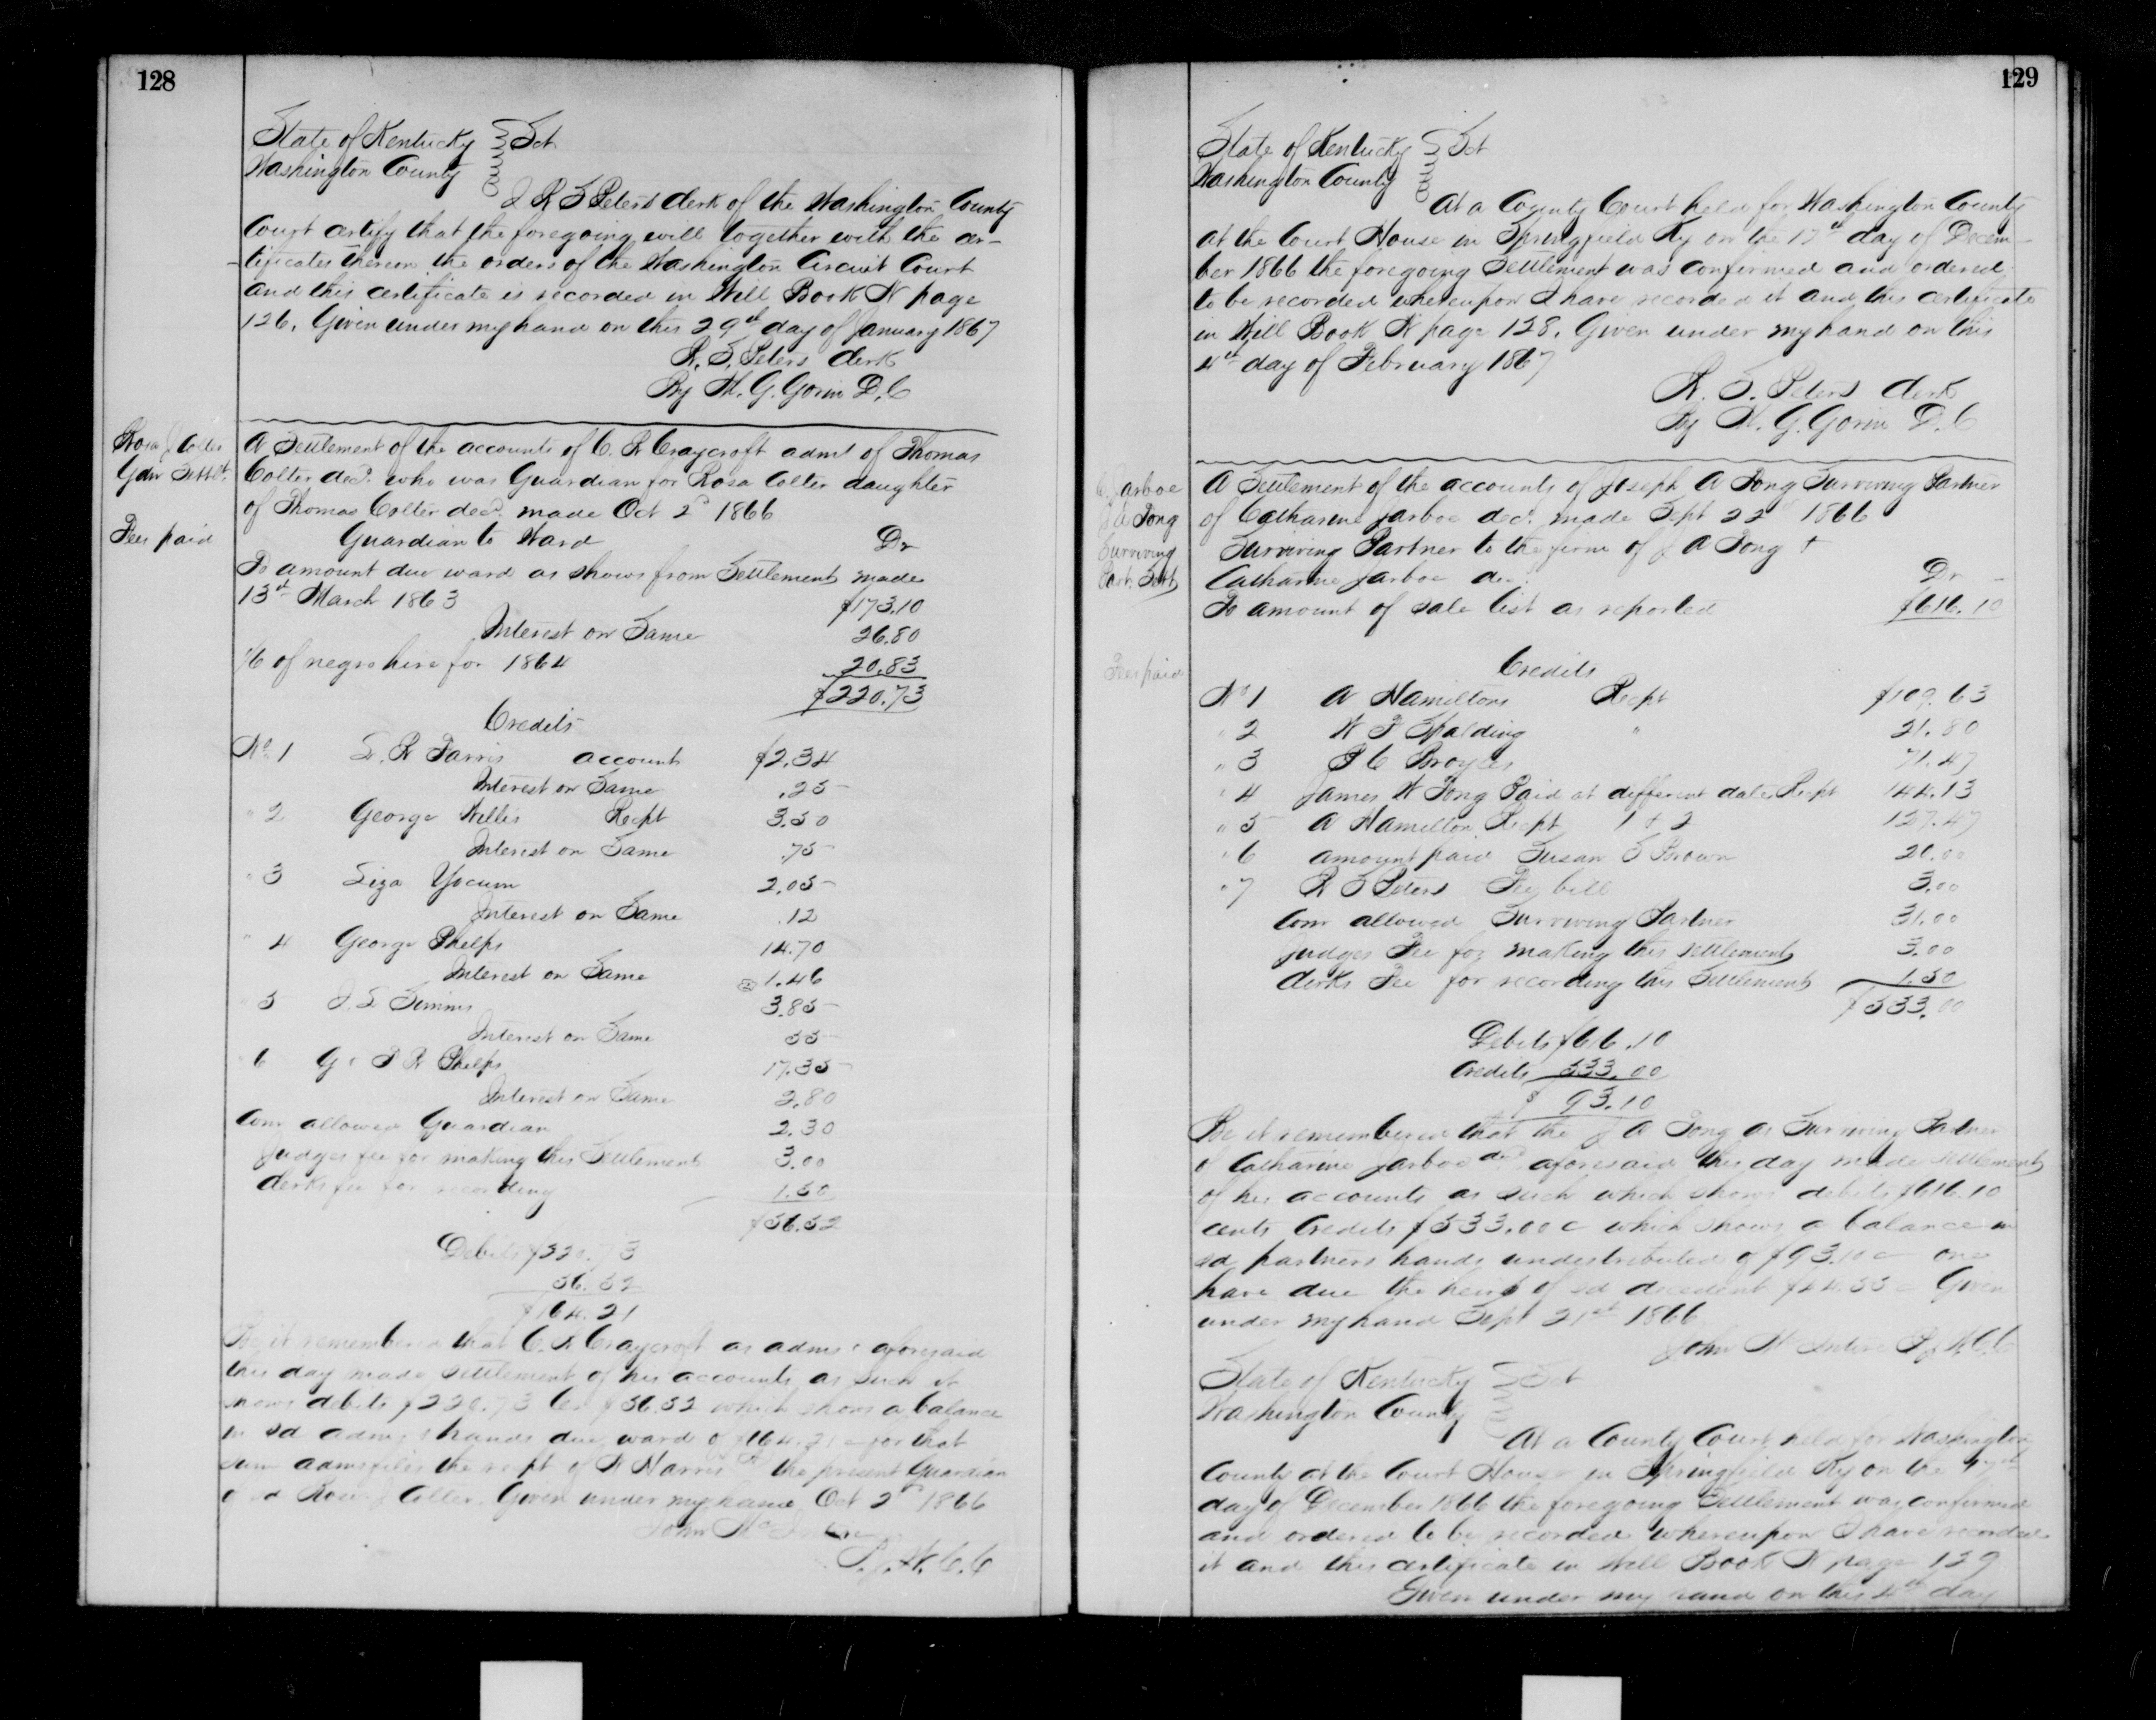 128
State of Kentucky } Sct
Washington County
I R S Peters Clerk of the Washington County
Court certify that the foregoing will together with the cer-
-tificates thereon the orders of the Washington Circuit Court
and this certificate is recorded in Will Book N page
126. Given under my hand on this 29th day of January 1867
R. S. Peters Clerk
By W. G. Gorin D. C
Rosa J Colter
Gdn Settlt.
Fees paid
A Settlement of the accounts of C. R Craycroft admr of Thomas
Colter decd. who was Guardian for Rosa Colter daughter
of Thomas Colter decd. made Oct 2d 1866
Guardian to Ward Dr
To amount due ward as shows from Settlement made
13th March 1863 $173.10
Interest on Same 26.80
1/6 of negro hire for 1864 20.83
$220.73
Credits
No. 1 S. R Farris account $2.34
Interest on Same .25
" 2 George Willis Recpt 3.50
Interest on Same .75
" 3 Liza Yocum 2.05
Interest on Same .12
" 4 George Phelps 14.70
Interest on Same 1.46
" 5 J. S Simms 3.85
Interest on Same 55
" 6 G & T R Phelps 17.35
Interest on Same 2.80
Com allowed Guardian 2.30
Judges fee for making this Settlement 3.00
Clerks fee for recording 1.50
$56.52
Debits $220.73
56.52
$164.21
Be it remembered that C. R Craycroft as admr aforesaid
this day made settlement of his accounts as such it
shows debits $220.73 Cr $56.52 which shows a balance
in sd admrs hands due ward of $164.21 c for that
sum admr files the recpt of W Harris the present Guardian
of sd Rosa J Colter. Given under my hand Oct 2d 1866
John McIntire
P. J. W. C. C
129
State of Kentucky } Sct
Washington County
At a County Court held for Washington County
at the Court House in Springfield Ky on the 17th day of Decem-
ber 1866 the foregoing Settlement was confirmed and ordered
to be recorded whereupon I have recorded it and this certificate
in Will Book N page 128. Given under my hand on this
4th day of February 1867
R. S. Peters Clerk
By W. G. Gorin D. C
C. Jarboe
J A Tong
Surviving
Part. Sett
Fees paid
A Settlement of the accounts of Joseph A Tong Surviving Partner
of Catharine Jarboe decd. made Sept 22d 1866
Surviving Partner to the firm of J A Tong &
Catharine Jarboe decd. Dr
To amount of sale list as reported $616.10
Credits
No 1 A Hamiltons Recpt $109.63
" 2 W F Spalding " 21.80
" 3 P C Broyles 71.47
" 4 James W Tong Paid at different dates Recpt 144.13
" 5 A Hamilton Recpt 1 & 2 127.47
" 6 amount paid Susan S Brown 20.00
" 7 R S Peters Fee bill 3.00
Com allowed Surviving Partner 31.00
Judges Fee for making this settlement 3.00
Clerks Fee for recording this Settlement 1.50
$533.00
Debits $616.10
Credits 533.00
$ 93.10
Be it remembered that the J A Tong as Surviving Partner
of Catharine Jarboe decd aforesaid this day made settlement
of his accounts as such which shows debits $616.10
cents Credits $533.00 c which shows a balance in
sd partners hands undistributed of $93.10 c one
have due the heirs of sd decedent $44.55 c Given
under my hand Sept 21st 1866
John McIntire P J W. C. C
State of Kentucky } Sct
Washington County
At a County Court held for Washington
County at the Court House in Springfield Ky on the 17th
day of December 1866 the foregoing Settlement was confirmed
and ordered to be recorded whereupon I have recorded
it and this certificate in Will Book N page 129
Given under my hand on this 4th day